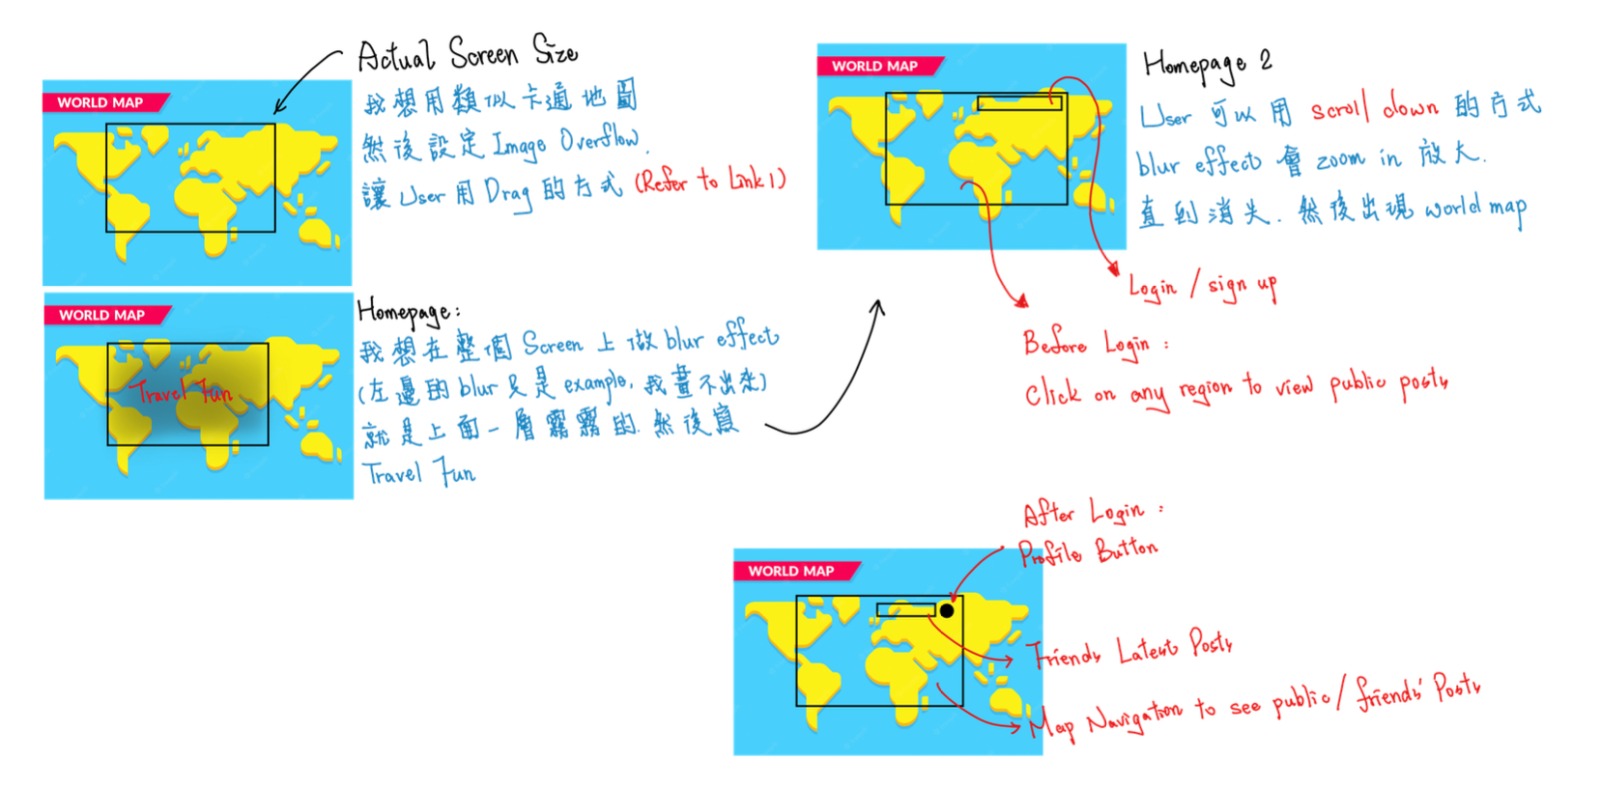 Actual Screen Size
WORLD MAP
我想用類似卡通地圖
然後設定 Image Overflow.
讓 User 用 Drag 的方式 (Refer to Link 1)
WORLD MAP
Travel Fun
Homepage:
我想在整個 Screen 上做 blur effect
(左邊的 blur 只是 example, 我畫不出來)
就是上面一層霧霧的. 然後寫
Travel Fun
WORLD MAP
Homepage 2
User 可以用 scroll down 的方式
blur effect 會 zoom in 放大.
直到消失. 然後出現 world map
Login / sign up
Before Login :
Click on any region to view public posts
After Login :
Profile Button
WORLD MAP
Friends Latest Posts
Map Navigation to see public / friends' Posts